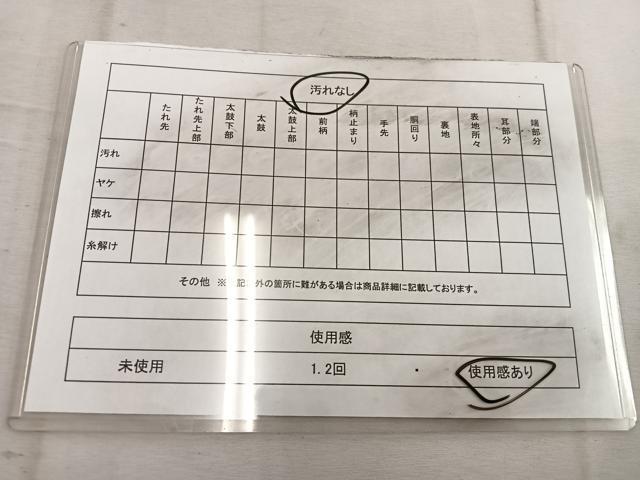 汚れなし
たれ先 たれ先上部 太鼓下部 太鼓 太鼓上部 前柄 柄止まり 手先 胴回り 裏地 表地所々 耳部分 端部分
汚れ
ヤケ
擦れ
糸解け
その他 ※ 記 外の箇所に難がある場合は商品詳細に記載しております。
使用感
未使用 1.2回 使用感あり